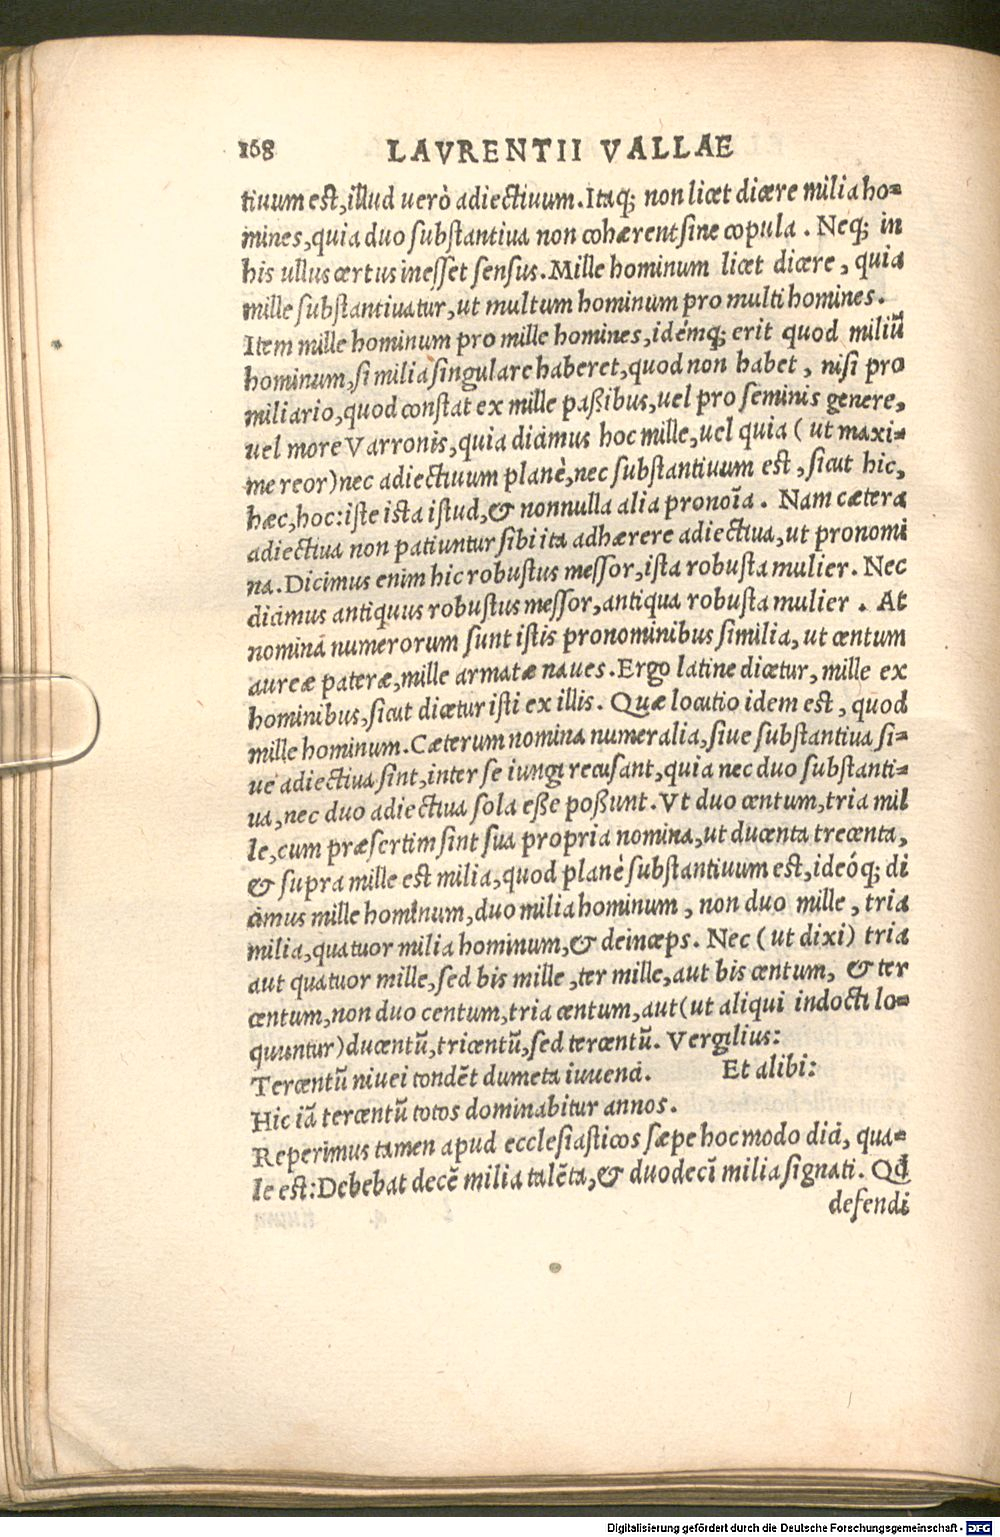 168 LAVRENTII VALLAE
tiuum est, illud uerò adiectiuum. Itaq; non licet dicere milia ho=
mines, quia duo substantiua non cohærent sine copula. Neq; in
his ullus certus inesset sensus. Mille hominum licet dicere, quia
mille substantiuatur, ut multum hominum pro multi homines.
Item mille hominum pro mille homines, idémq; erit quod miliũ
hominum, si milia singulare haberet, quod non habet, nisi pro
miliario, quod constat ex mille paßibus, uel pro seminis genere,
uel more Varronis, quia dicimus hoc mille, uel quia ( ut maxi=
me reor) nec adiectiuum planè, nec substantiuum est, sicut hic,
hæc, hoc: iste ista istud, & nonnulla alia pronoĩa. Nam cætera
adiectiua non patiuntur sibi ita adhærere adiectiua, ut pronomi
na. Dicimus enim hic robustus messor, ista robusta mulier. Nec
dicimus antiquus robustus messor, antiqua robusta mulier. At
nomina numerorum sunt istis pronominibus similia, ut centum
aureæ pateræ, mille armatæ naues. Ergo latine dicetur, mille ex
hominibus, sicut dicetur isti ex illis. Quæ locutio idem est, quod
mille hominum. Cæterum nomina numeralia, siue substantiua si=
ue adiectiua sint, inter se iungi recusant, quia nec duo substanti=
ua, nec duo adiectiua sola eße poßunt. Vt duo centum, tria mil
le, cum præsertim sint sua propria nomina, ut ducenta trecenta,
& supra mille est milia, quod planè substantiuum est, ideóq; di
cimus mille hominum, duo milia hominum, non duo mille, tria
milia, quatuor milia hominum, & deinceps. Nec ( ut dixi) tria
aut quatuor mille, sed bis mille, ter mille, aut bis centum, & ter
centum, non duo centum, tria centum, aut (ut aliqui indocti lo=
quuntur) ducentũ, tricentũ, sed tercentũ. Vergilius:
Tercentũ niuei tondẽt dumeta iuuenci. Et alibi:
Hic iã tercentũ totos dominabitur annos.
Reperimus tamen apud ecclesiasticos sæpe hoc modo dici, qua=
le est: Debebat decẽ milia talẽta, & duodecĩ milia signati. Qd
defendi
Digitalisierung gefördert durch die Deutsche Forschungsgemeinschaft - DFG